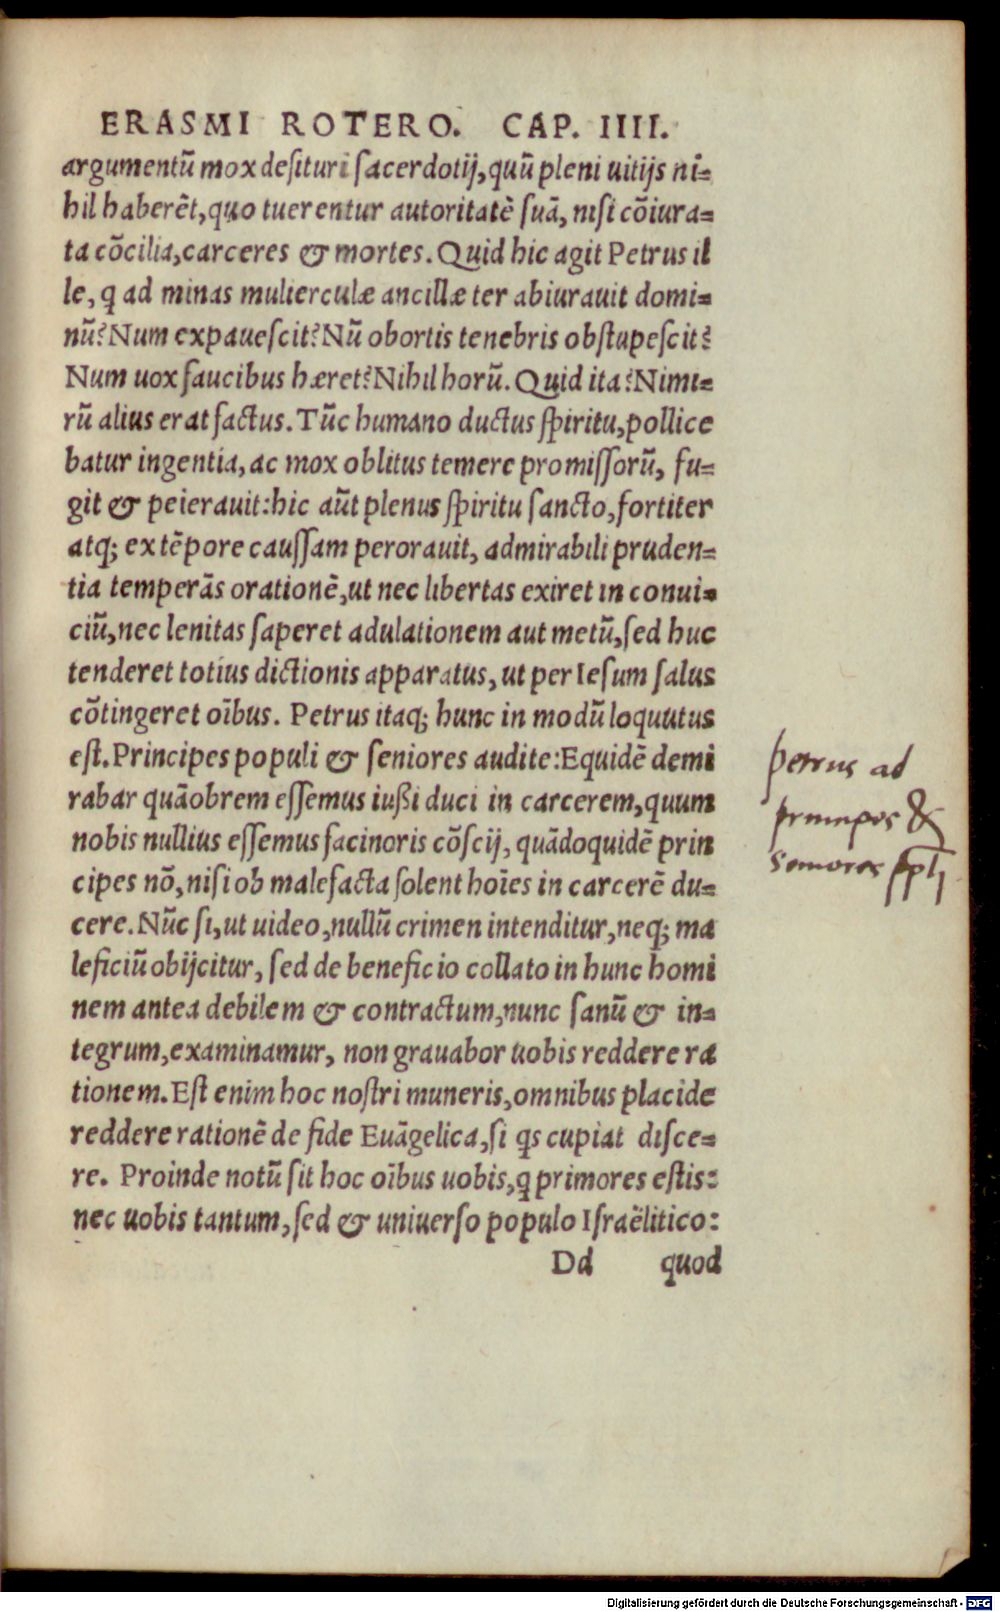 ERASMI ROTERO. CAP. IIII.
argumentũ mox desituri sacerdotij, quũ pleni uitijs ni=
hil haberẽt, quo tuerentur autoritatẽ suã, nisi cõiura=
ta cõcilia, carceres & mortes. Quid hic agit Petrus il
le, q ad minas mulierculæ ancillæ ter abiurauit domi=
nũ? Num expauescit? Nũ obortis tenebris obstupescit?
Num uox faucibus hæret? Nihil horũ. Quid ita? Nimi=
rũ alius erat factus. Tũc humano ductus spiritu, pollice
batur ingentia, ac mox oblitus temere promissorũ, fu=
git & peierauit: hic aũt plenus spiritu sancto, fortiter
atq; ex tẽpore caussam perorauit, admirabili pruden=
tia temperãs orationẽ, ut nec libertas exiret in conui=
ciũ, nec lenitas saperet adulationem aut metũ, sed huc
tenderet totius dictionis apparatus, ut per Iesum salus
cõtingeret oĩbus. Petrus itaq; hunc in modũ loquutus
est. Principes populi & seniores audite: Equidẽ demi
rabar quãobrem essemus iußi duci in carcerem, quum
nobis nullius essemus facinoris cõscij, quãdoquidẽ prin
cipes nõ, nisi ob malefacta solent hoĩes in carcerẽ du=
cere. Nũc si, ut uideo, nullũ crimen intenditur, neq; ma
leficiũ obijcitur, sed de beneficio collato in hunc homi
nem antea debilem & contractum, nunc sanũ & in=
tegrum, examinamur, non grauabor uobis reddere ra
tionem. Est enim hoc nostri muneris, omnibus placide
reddere rationẽ de fide Euãgelica, si qs cupiat disce=
re. Proinde notũ sit hoc oĩbus uobis, q primores estis:
nec uobis tantum, sed & uniuerso populo Israëlitico:
Dd quod
petrus ad
principes &
seniores ppli
Digitalisierung gefördert durch die Deutsche Forschungsgemeinschaft - DFG